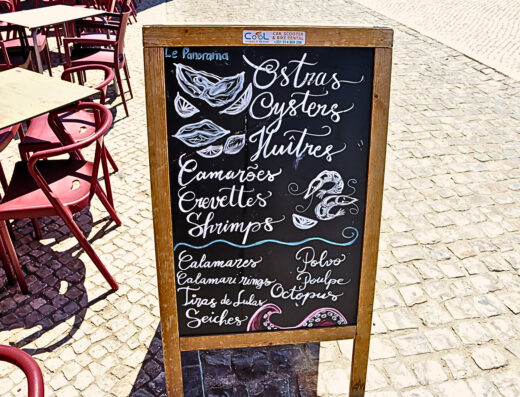 COOL
CAR, SCOOTER
& BIKE RENTAL
Le Panorama
Ostras
Oysters
Huîtres
Camarões
Crevettes
Shrimps
Calamares
Calamari rings
Tiras de Lulas
Seiches
Polvo
Poulpe
Octopus